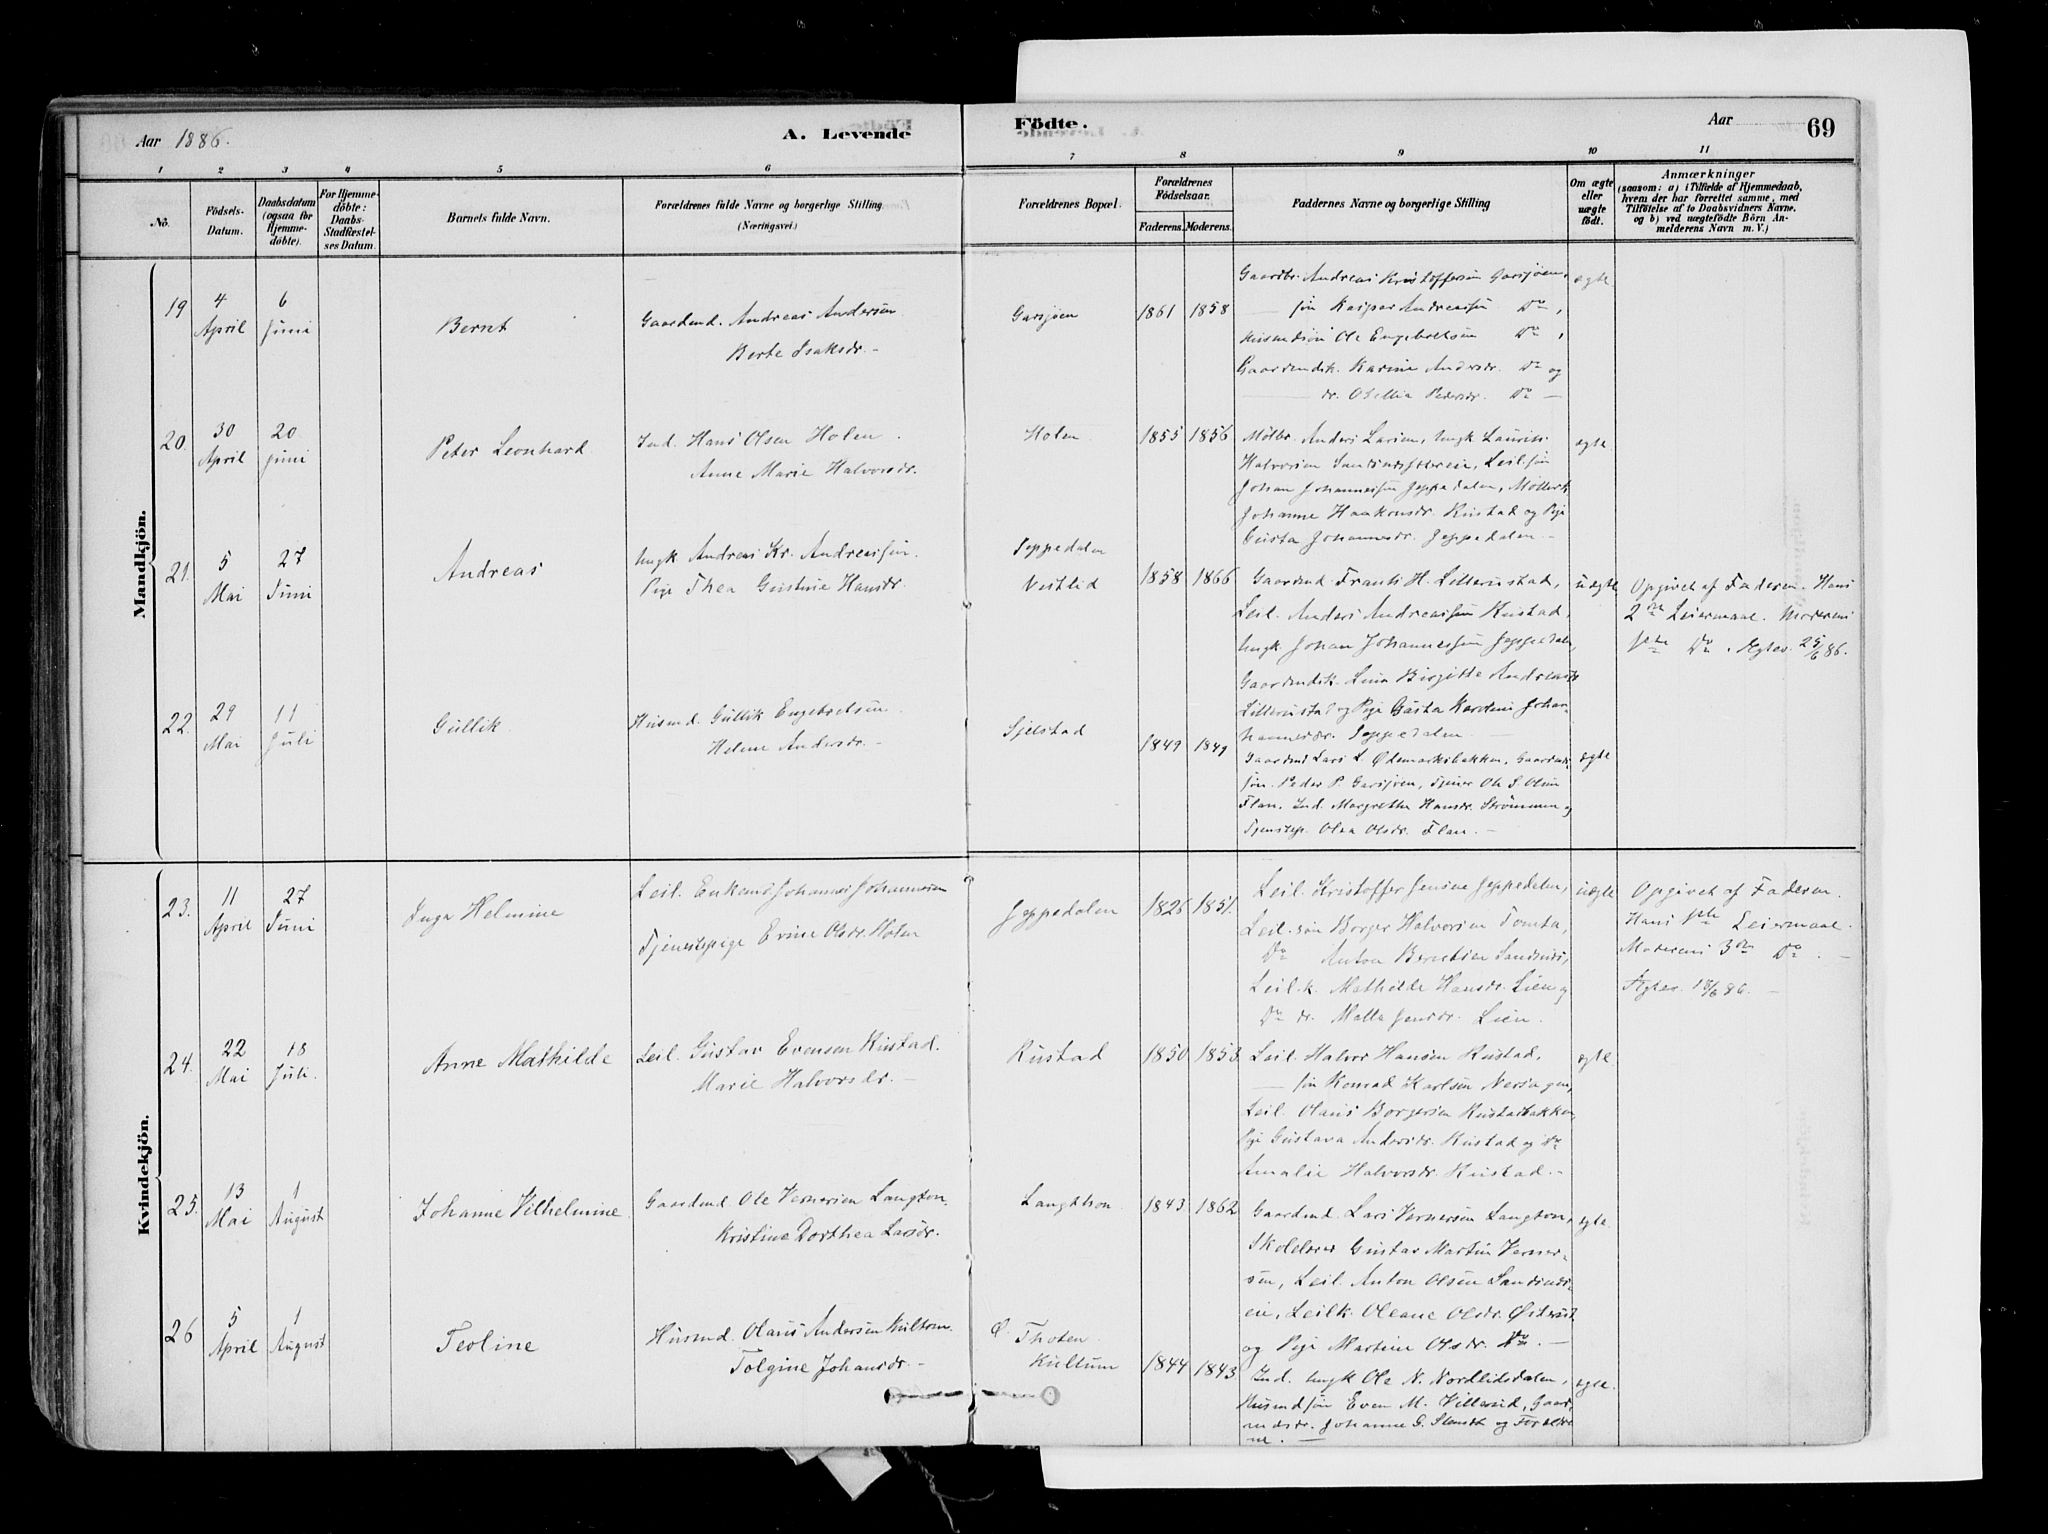 Aar 1886.
A. Levende
Födte.
Aar
69
1 2 3 4 5 6 7 8 9 10 11
No.
Födsels-
Datum.
Daabsdatum
(ogsaa for
Hjemme-
döbte).
For Hjemme-
döbte:
Daabs-
Stadfæstel-
ses Datum.
Barnets fulde Navn.
Forældrenes fulde Navne og borgerlige Stilling
(Næringsvei.)
Forældrenes Bopæl.
Forældrenes
Födselsaar.
Faderens. Moderens.
Faddernes Navne og borgerlige Stilling
Om ægte
eller
uægte
født.
Anmærkninger
(saasom: a) i Tilfælde af Hjemmedaab,
hvem der har forrettet samme, med
Tilföielse af to Daabsvidners Navne.
og b) ved uægtefödte Börn An-
melderens Navn m. V.)
Mandkjön.
19
4
April
6
Juni
Bernt
Gaardmd. Andreas Andersen
Berte Isaksdr.
Garsjøen
1861 1858
Gaardbr. Andreas Kristoffersen Garsjøen,
— søn Kaspar Andreassen Do,
Husmdsøn Ole Engebretsen Do,
Gaardmdsk. Karine Andersdr. Do og
— dr. Otellia Pedersdr. Do —
ægte
20.
30
April
20
Juni
Peter Leonhard
Ind. Hans Olsen Holen.
Anne Marie Halvorsdr.
Holen
1855 1856
Mølbr. Anders Larsen, Ungk Laurits
Halvorsen Sandsnes, Leil.søn
Johan Johannessen Jeppedalen, Møllerk
Johanne Haakonsdr. Rustad og Pige
Gusta Johannesdr. Jeppedalen —
ægte
21.
5
Mai
27
Juni
Andreas
Ungk Andreas Kr. Andreassen.
Pige Thea Gustine Hansdr.
Jeppedalen
Vestlid
1858 1866
Gaardmd Frants H. Litterustad,
Leil. Anders Andreassen Rustad,
Ungk. Johan Johannessen Jeppedalen,
Gaardmdsk. Lina Birgitte Andreasdr
Litterustad og Pige Gusta Karoline Johan-
nesdr. Jeppedalen —
uægte
Opgivet af Faderen. Hans
2det Leiermaal. Moderens
1ste Do. Attev. 25/6 86.
22.
29
Mai
11
Juli
Gullik
Husmd. Gullik Engebretsen.
Helene Andersdr. —
Sjelstad
1849 1849
Gaardmd Lars L. Ødemarksbakken, Gaardmds
søn Peder P. Garsjøen, Tjener Ole S. Olsen
Flan. Ind. Margrethe Hansdr. Strømmen og
Tjenstep. Olea Olsdr. Flan. —
ægte
Kvindekjön.
23.
11
April
27
Juni
Inga Helmine
Leil. Enkemd Johannes Johannesen
Tjenestepige Evine Olsdr. Holen
Jeppedalen
1826 1851.
Leil. Kristoffer Jensen Jeppedalen,
Leil.søn Borger Halvorsen Tomta,
Do Anton Berntsen Sandsnes,
Leil.k. Mathilde Hansdr. Lien og
Do dr. Malla Jensdr. Lien.
uægte
Opgivet af Faderen.
Hans 1ste Leiermaal.
Moderens 3die Do. —
Attev. 18/6 86. —
24.
22
Mai
18
Juli.
Anne Mathilde
Leil. Gustav Evensen Rustad.
Marie Halvorsdr. —
Rustad
1850 1853.
Leil. Halvor Hansen Rustad,
— søn Konrad Karlsen Nersagen,
Leil. Olaus Borgersen Rustadbakken,
Pige Gustava Andersdr. Rustad og Do
Amalie Halvorsdr. Rustad. —
ægte
25.
13
Mai
1
August
Johanne Vilhelmine
Gaardmd. Ole Vernersen Langton.
Kristine Dorthea Larsdr.
Langthon.
1843 1862
Gaardmd. Lars Vernersen Langton,
Skolelærer Gustav Martin Verner-
sen, Leil. Anton Olsen Sandsnes-
eie, Leilk. Oleane Olsdr. Østerud
og Pige Martine Olsdr. Do. —
ægte.
26
5
April
1
August
Teoline
Husmd. Olaus Andersen Kultom.
Tolgine Johansdr. —
Ø. Thoten
Kultum
1844 1843
Ind. Ungk Ole N. Nordlidsdalen,
Husmdsøn Even M. Villerud, Gaar-
mdsdr. Johanne G. og Foreldre
ne. —
ægte.